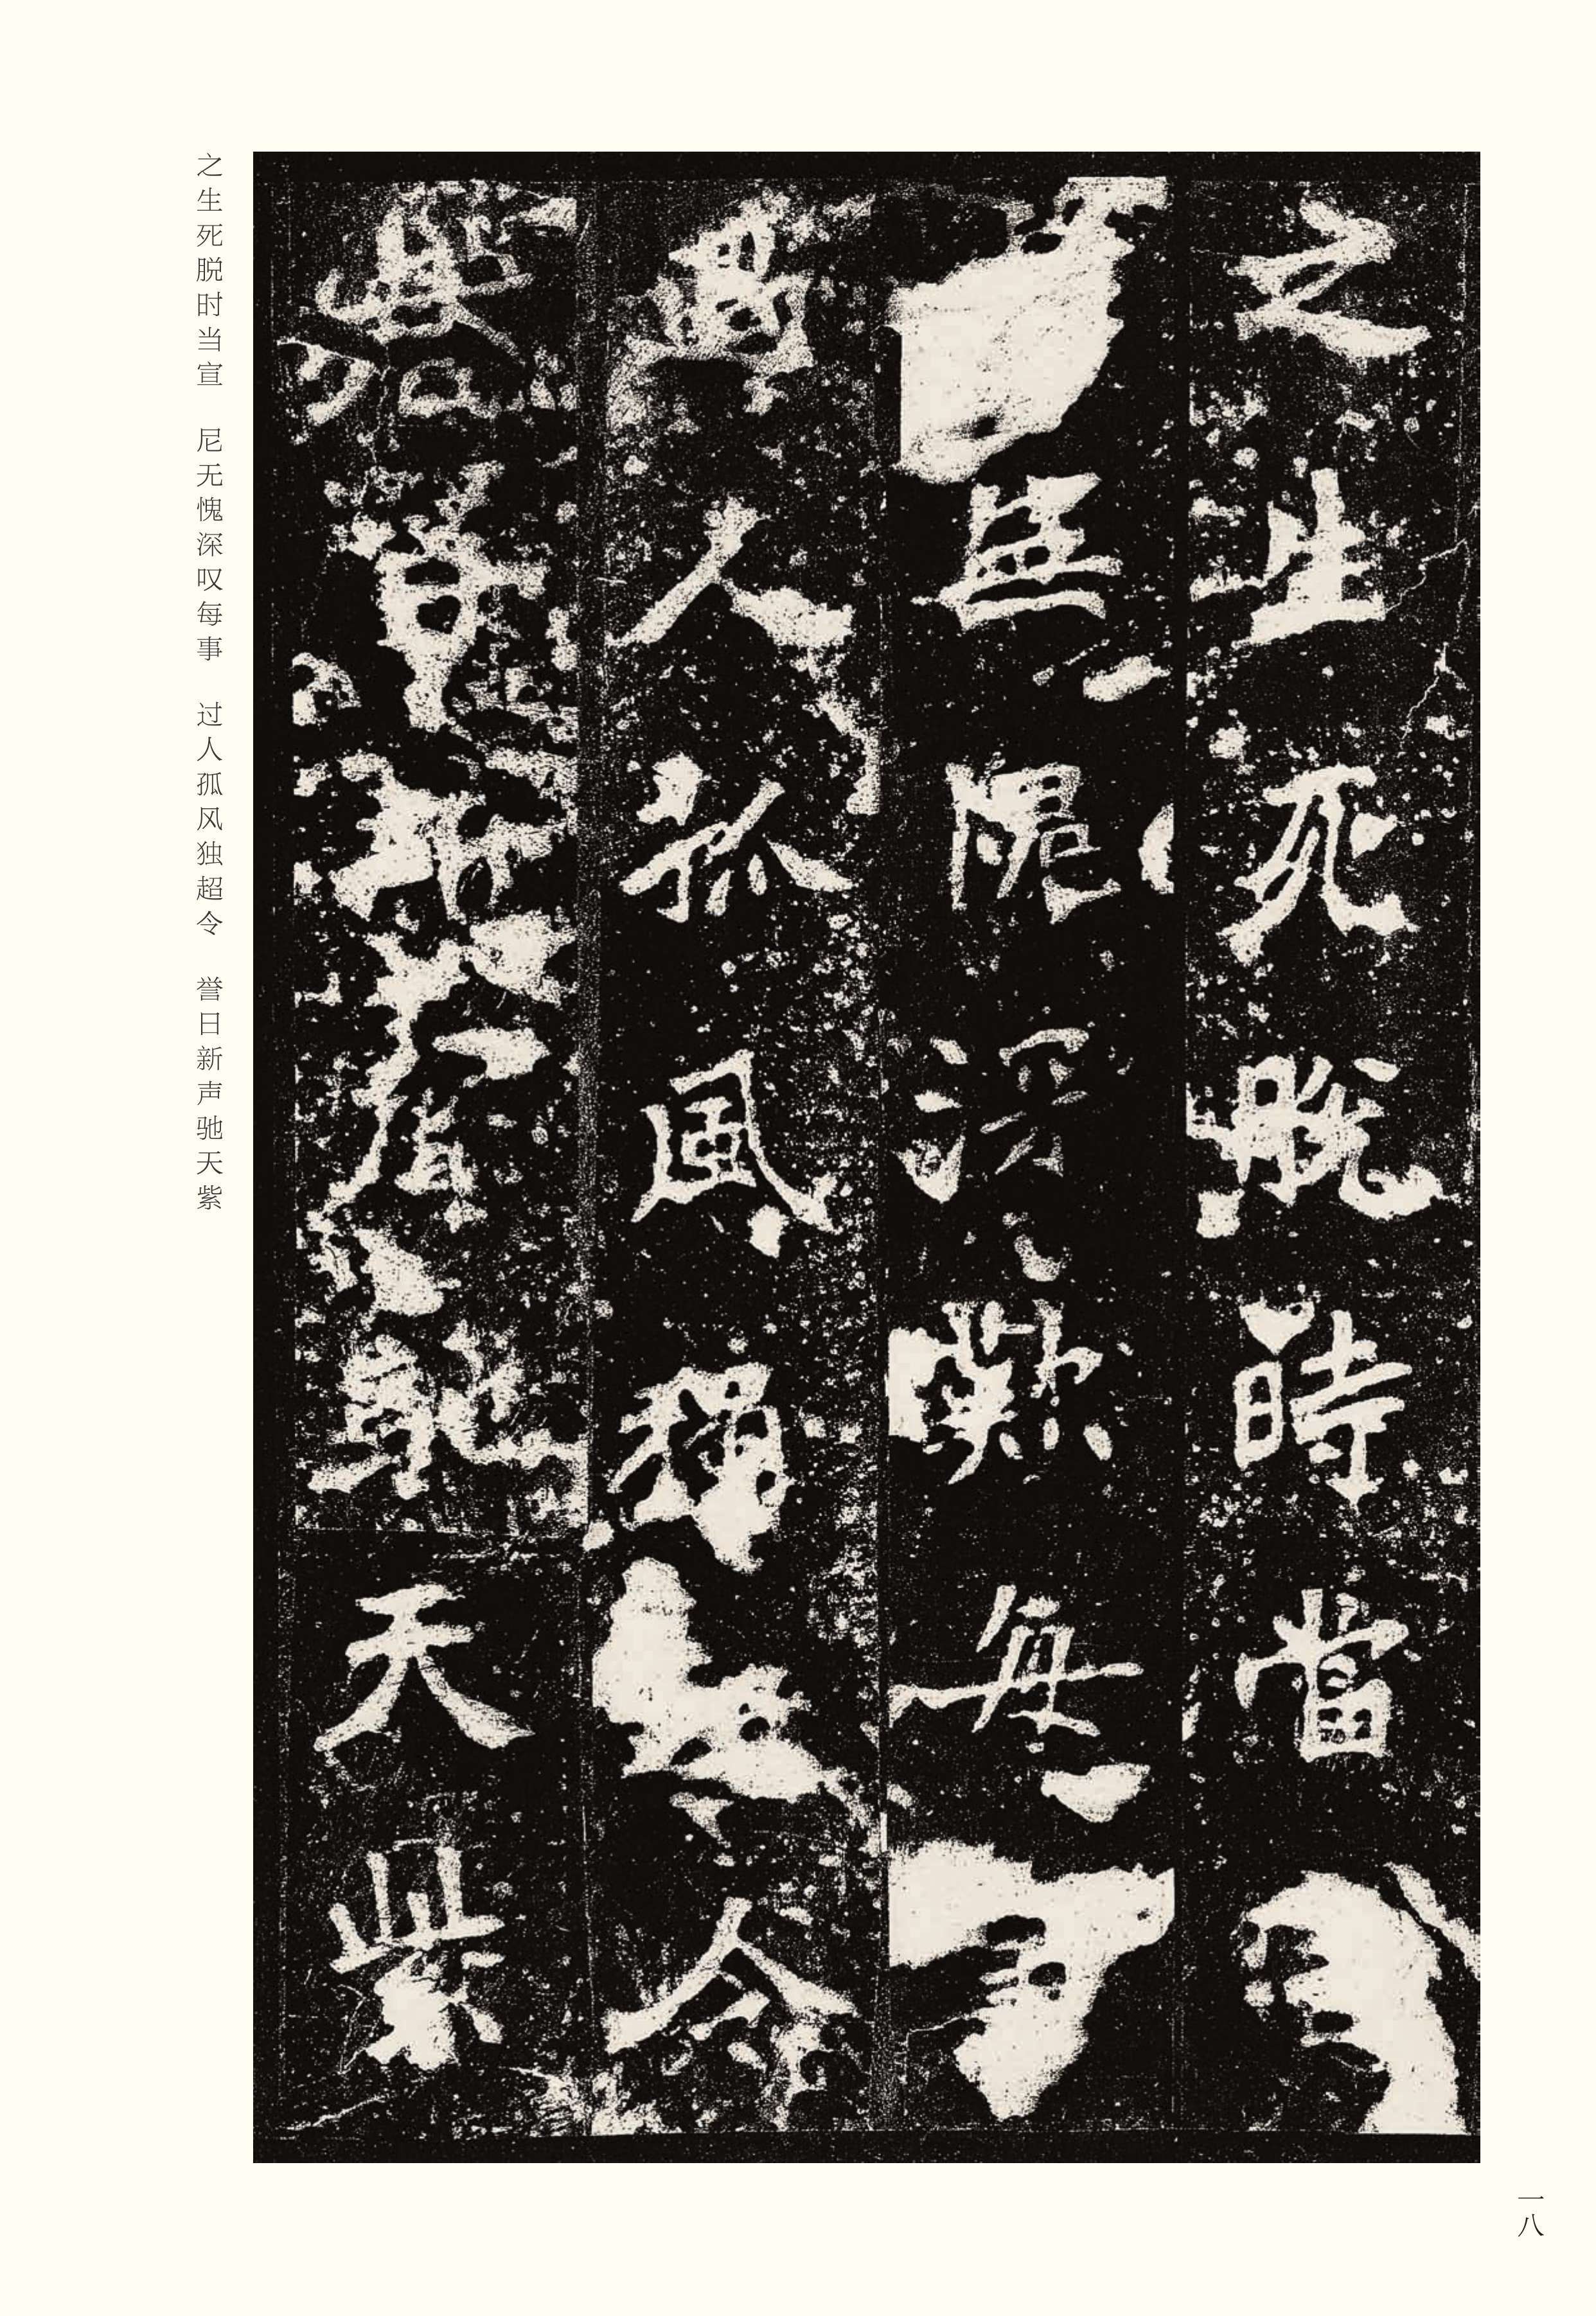 之生死脫時當
無愧深歎每事
過人孤風獨超令
譽日新聲馳天紫
之生死脱时当宣 尼无愧深叹每事 过人孤风独超令 誉日新声驰天紫
一八